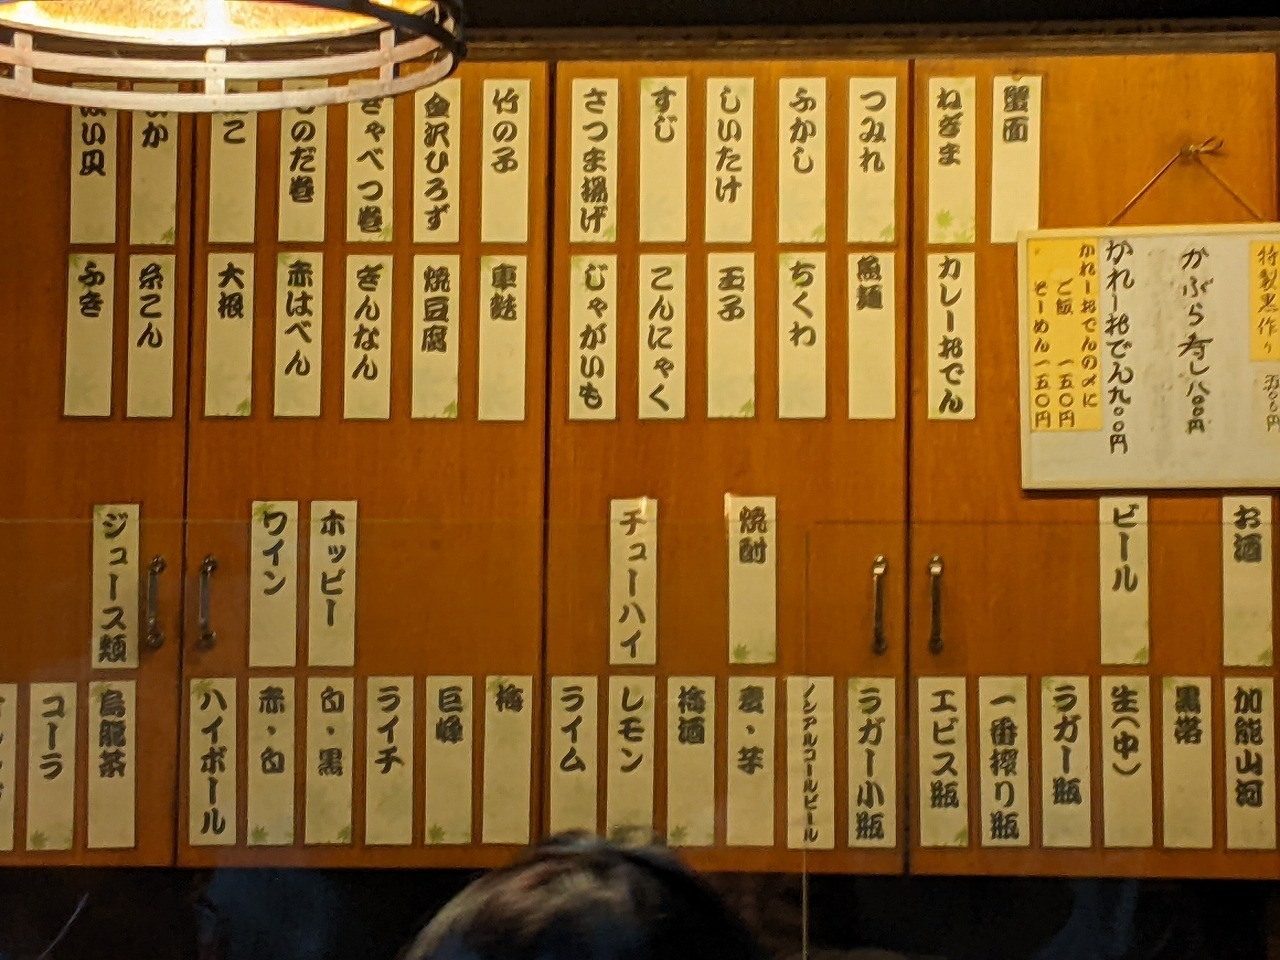 蟹面
ねぎま
つみれ
ふかし
しいたけ
すじ
さつま揚げ
竹の子
金沢ひろず
きゃべつ巻
のだ巻
こ
か
い貝
カレーおでん
魚麺
ちくわ
玉子
こんにゃく
じゃがいも
車麩
焼豆腐
ぎんなん
赤はべん
大根
糸こん
ふき
特製黒作り 五〇〇円
かぶら寿し八〇〇円
かれーおでん九〇〇円
かれーおでんの〆に
ご飯 一五〇円
そーめん一五〇円
お酒
ビール
焼酎
チューハイ
ホッピー
ワイン
ジュース類
加能山河
黒帯
生(中)
ラガー瓶
一番搾り瓶
エビス瓶
ラガー小瓶
ノンアルコールビール
麦・芋
梅酒
レモン
ライム
梅
巨峰
ライチ
白・黒
赤・白
ハイボール
烏龍茶
コーラ